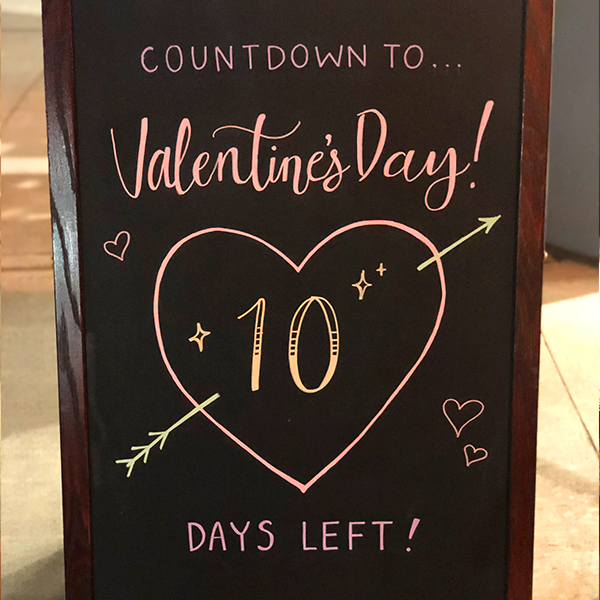 COUNTDOWN TO...
Valentine's Day!
10
DAYS LEFT!